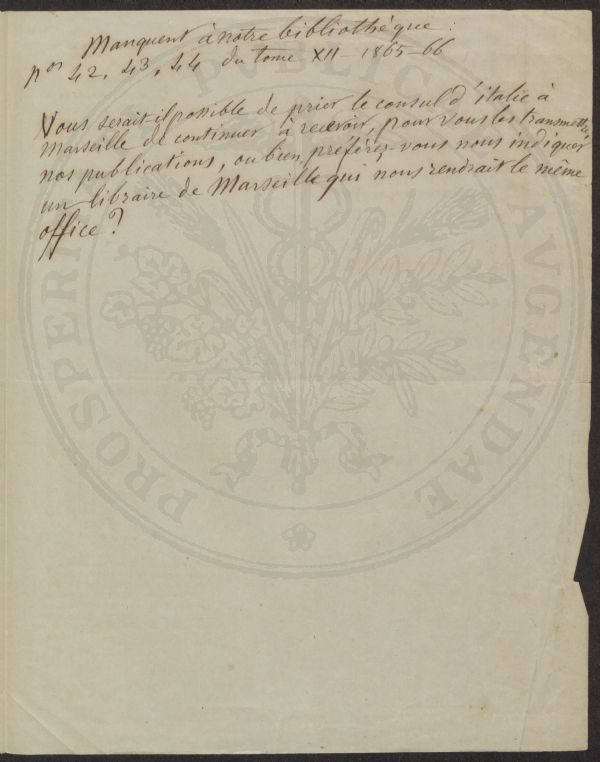 Manquent à notre bibliothèque :
nos 42, 43, 44 du tome XII - 1865-66
Vous serait-il possible de prier le consul d'italie à
Marseille de continuer à recevoir, pour vous les transmettre,
nos publications, ou bien, préférez-vous nous indiquer
un libraire de Marseille qui nous rendrait le même
office ?
PROSPERITATI PVBLICAE AVGENDAE